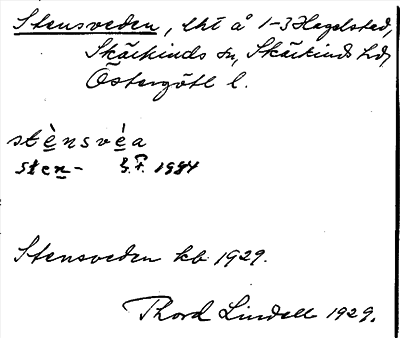 Stensveden, lht å 1-3 Hagelstad,
Skärkinds sn, Skärkinds hd,
Östergötl l.
stènsvèa
sten- G.F. 1984
Stensveden kb 1929.
Thord Lindell 1929.